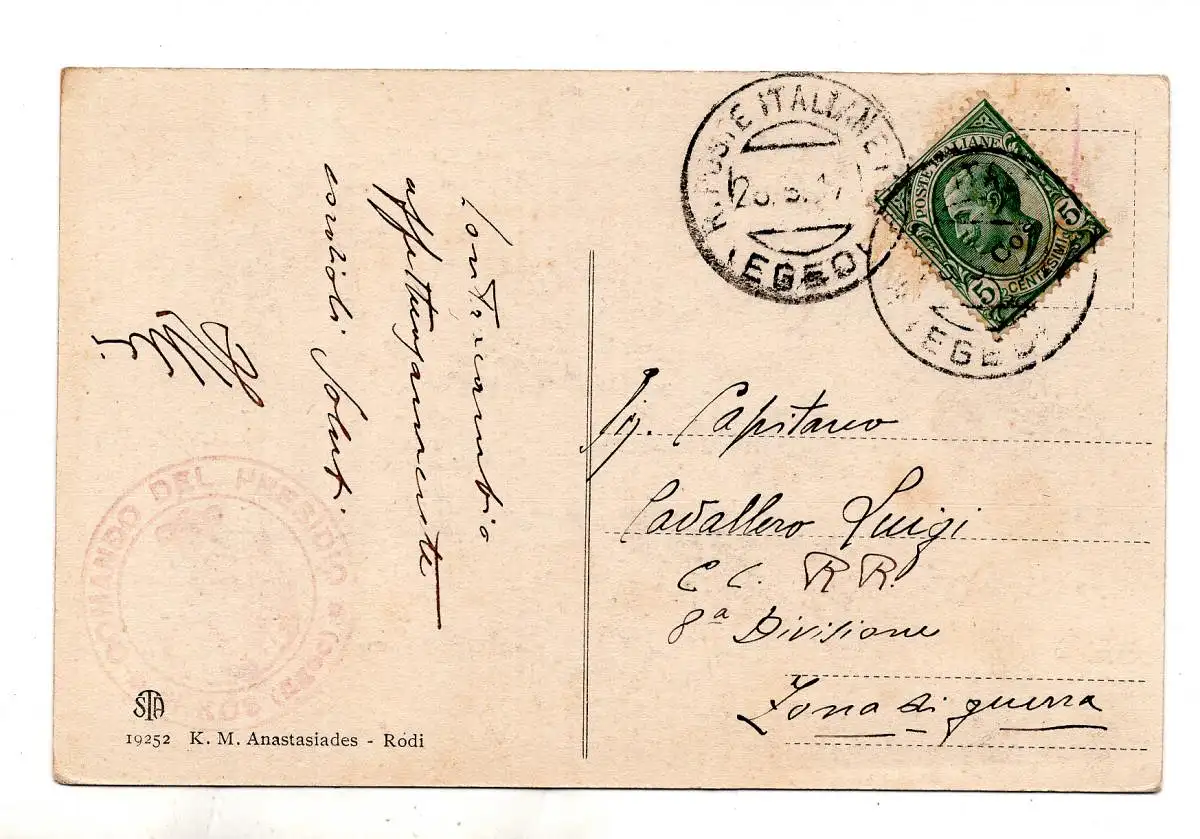 Contraccambio
affettuosamente
cordiali saluti
R. POSTE ITALIANE
(EGEO)
POSTE ITALIANE
5
CENTESIMI
5
(EGEO)
Sig. Capitano
Cavallero Luigi
C C. R R.
8ª Divisione
Zona di guerra
COMANDO DEL PRESIDIO * KOS (EGEO)
STA
19252 K. M. Anastasiades - Rodi